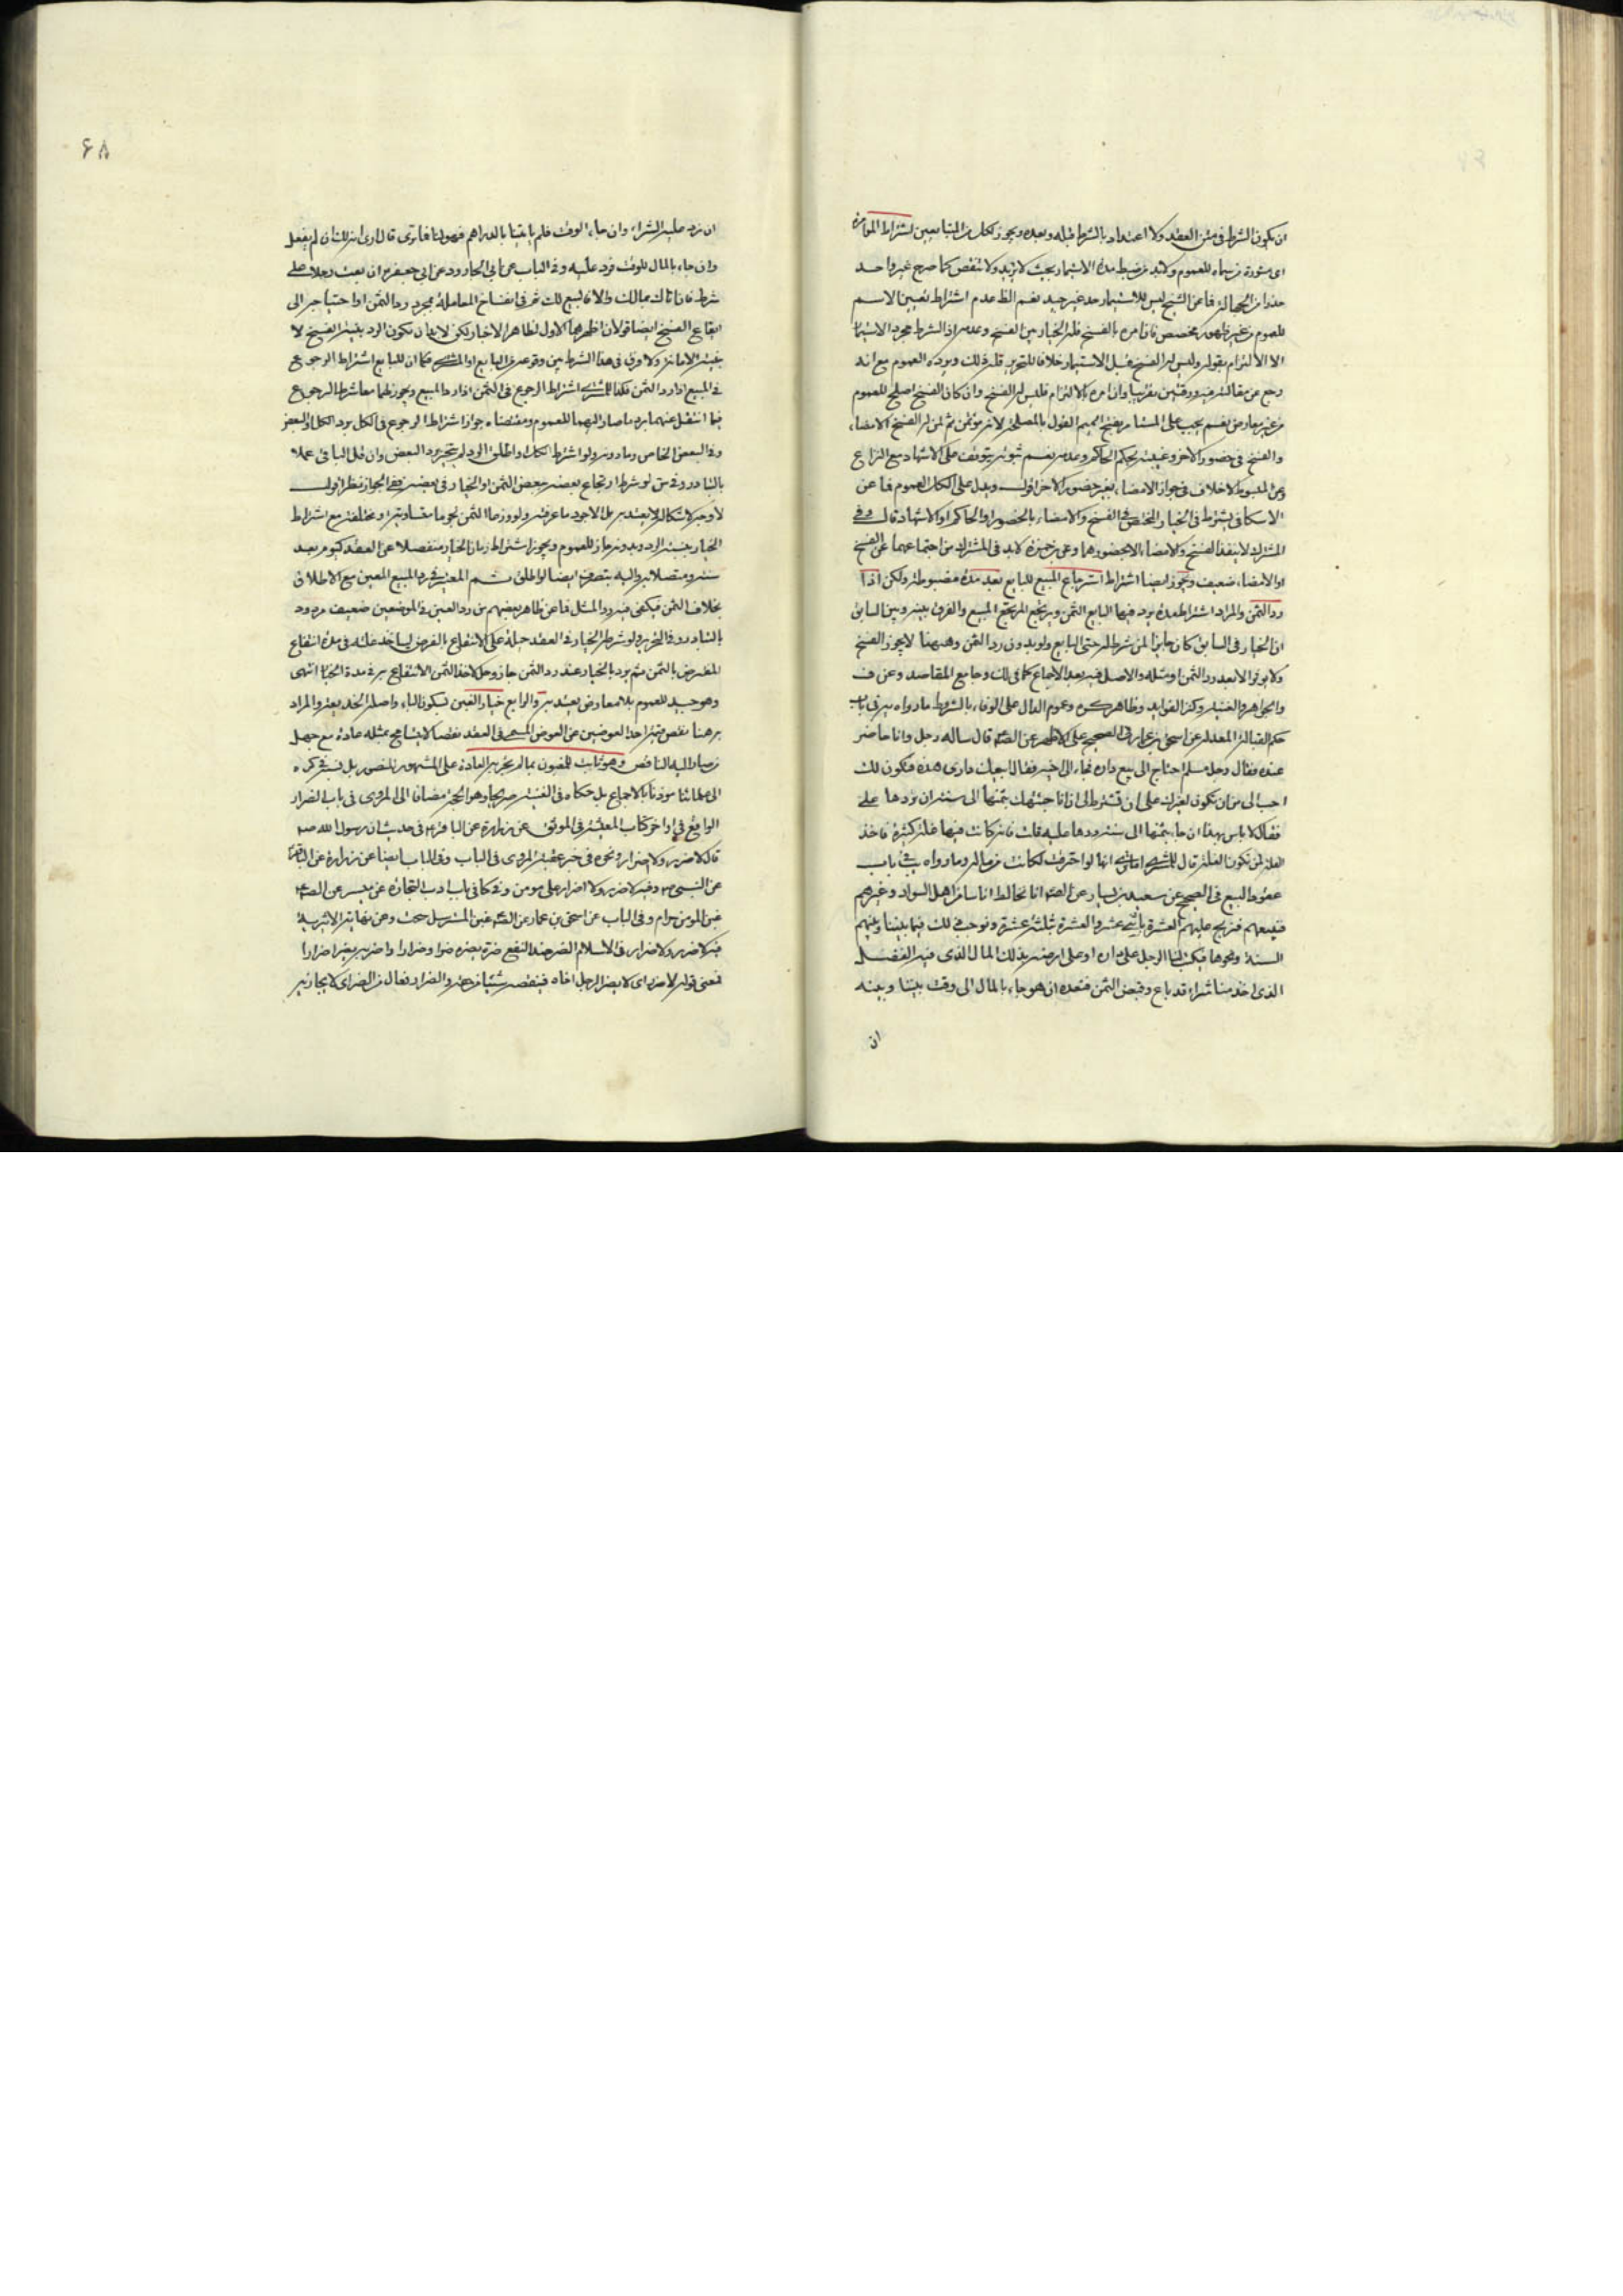 ان يكون الشرط في متن العقد ولا اعتداد بالشرط قبله وبعده ويجوز لكل من المتبايعين اشتراط المؤامرة
اى مشورة من سماه للعموم ولابد من ضبط مدة الاستيمار بحيث لا يزيد ولا ينقص كما صرح غير واحد
حذرا من الجهالة فما عن الشيخ ليس للاستيمار حد غير جيد نعم الظ عدم اشتراط تعيين الاسم
للعموم من غير ظهور مخصص فاذا امره بالفسخ فله الخيار بين الفسخ وعدمه اذ الشرط مجرد الاستيمار
الا الالتزام بقوله وليس له الفسخ قبل الاستيمار خلافا للتحرير قلت ذلك ويرده العموم مع انه
رجع عن مقالته فيه ورقتين تقريبا وان امره بالالتزام فليس له الفسخ وان كان الفسخ اصلح للعموم
من غير معارض نعم يجب على المستامر بفتح الميم القول بالمصلحة لانه مؤتمن ثم لمن له الفسخ الامضاء
والفسخ في حضور الاخر وغيبته بحكم الحاكم وعدمه نعم ثبوته يتوقف على الاشهاد مع النزاع
وعن المبسوط لا خلاف في جواز الامضاء بغير حضور الاخر اقول ويدل على الكل العموم فما عن
الاسكافي يشترط في الخيار المختص في الفسخ والامضاء بالحضور او الحاكم او الاشهاد قال وفي
المشترك لا ينفذ الفسخ والامضاء الا بحضورهما وعن بن حمزة لابد في المشترك من اجتماعهما على الفسخ
او الامضاء ضعيف ويجوز ايضا اشتراط استرجاع المبيع للبايع بعد مدة مضبوطة ولكن اذا
رد الثمن والمراد اشتراط مدة يرد فيها البايع الثمن ويرتجع المبيع والفرق بينه وبين السابق
ان الخيار في السابق كان جايزا لمن شرط له حتى البايع ولو بدون رد الثمن وههنا لا يجوز الفسخ
ولا يؤثر الا بعد رد الثمن او مثله والاصل فيه بعد الاجماع كما في لك وجامع المقاصد وعن ف
والجواهر والغنية وكنز الفوايد وظاهر كره وعموم الدال على الوفاء بالشروط ما رواه يه في باب
حكم القبالة المعدلة عن اسحق بن عمار في الصحيح على الاظهر عن الصه قال ساله رجل وانا حاضر
عنده فقال رجل مسلم احتاج الى بيع داره فجاء الى اخيه فقال ابيعك دارى هذه فيكون لك
احب الى من ان يكون لغيرك على ان تشترط لى اذا انا جئتك بثمنها الى سنة ان تردها على
فقال لا باس بهذا ان جاء بثمنها الى سنة ردها عليه قلت فانه كانت فيها غلة كثيرة فاخذ
الغلة لمن تكون الغلة قال للمشترى اما ترى انها لو احترقت لكانت من ماله وما رواه يب في باب
عقود البيع في الصحيح عن سعيد بن يسار عن الصه انا نخالط اناسا من اهل السواد وغيرهم
فنبيعهم فنربح عليهم العشرة باثنى عشر والعشرة بثلثة عشر ونوجب ذلك فيما بيننا وبينهم
السنة ونحوها فيكتب لنا الرجل على داره او على ارضه بذلك المال الذى فيه الفضل
الذى اخذ منا شراء قد باع وقبض الثمن فنعده ان هو جاء بالمال الى وقت بيننا وبينه
ان
۶۸
ان نرد عليه الشراء وان جاء الوقت فلم ياتينا بالدراهم فهو لنا فما ترى قال ارى انه لك ان لم يفعل
وان جاء بالمال للوقت فرد عليه وفي الباب عن ابى الجارود عن ابى جعفر ان بعت رجلا على
شرط فان اتاك بمالك والا فالبيع لك ثم في انفساخ المعاملة بمجرد رد الثمن او احتياجه الى
ايقاع الفسخ ايضا قولان اظهرهما الاول لظاهر الاخبار لكن لابد ان يكون الرد بنية الفسخ لا
بنية الامانة ولا فرق في هذا الشرط بين وقوعه من البايع او المشترى فكما ان للبايع اشتراط الرجوع
في المبيع اذا رد الثمن فكذا للمشترى اشتراط الرجوع في الثمن اذا رد المبيع ويجوز لهما معا شرط الرجوع
فيما انتقل عنهما برد ما صار اليهما للعموم ومقتضاه جواز اشتراط الرجوع في الكل برد الكل او البعض
وفي البعض الخاص وما دونه ولو اشترط الكل او اطلق الرد لم يتجزء رد البعض وان قل الباقى عملا
بالتبادر وفي س لو شرط ارتجاع بعضه ببعض الثمن او الخيار في بعضه ففى الجواز نظر اقول
لا وجه للاشكال ولا يعتد به بل الاجود ما عرفته ولو وزعا الثمن نجوما متساوية او مختلفة مع اشتراط
الخيار بنسبة الرد وبدونه جاز للعموم ويجوز اشتراط زمان الخيار منفصلا عن العقد كيوم بعد
سنة ومتصلا به واليه ينصرف ايضا لو اطلق ثم المعتبر في رد المبيع المعين مع الاطلاق
بخلاف الثمن فيكفى فيه رد المثل فما عن ظاهر بعضهم من رد العين في الموضعين ضعيف مردود
بالتبادر وفي التحرير ولو شرط الخيار في العقد حيلة على الانتفاع بالقرض لياخذ غلته في مدة انتفاع
المقترض بالثمن ثم يرد بالخيار عند رد الثمن جاز وحل لاخذ الثمن الانتفاع به في مدة الخيار انتهى
وهو جيد للعموم بلا معارض يعتد به والرابع خيار الغبن بسكون الباء واصله الخديعة والمراد
به هنا نقص قيمة احد العوضين عن العوض المسمى في العقد نقصا لا يتسامح بمثله عادة مع جهل
من صار اليه الناقص وهو ثابت للمغبون بما لم تجر به العادة على المشهور المنصور بل نسبه في كره
الى علمائنا موذنا بالاجماع بل حكاه في الغنية صريحا وهو الحجة مضافا الى المروى في باب الضرار
الواقع في اواخر كتاب المعيشة في الموثق عن زرارة عن الباقر ع في حديث ان رسول الله ص
قال لا ضرر ولا ضرار ونحوه في خبر عقبة المروى في الباب وفي الباب ايضا عن زرارة عن الباقر
عن النبى ص وفيه لا ضرر ولا اضرار على مومن وفي كافي باب ادب التجارة عن ميسر عن الصه
غبن المومن حرام وفي الباب عن اسحق بن عمار عن الصه غبن المسترسل سحت وعن نهاية الاثيرية
فيه لا ضرر ولا ضرار في الاسلام الضر ضد النفع ضره يضره ضرا وضرارا واضر به يضر اضرارا
فمعنى قوله لا ضرر اى لا يضر الرجل اخاه فينقصه شيئا من حقه والضرار فعال من الضر اى لا يجازيه